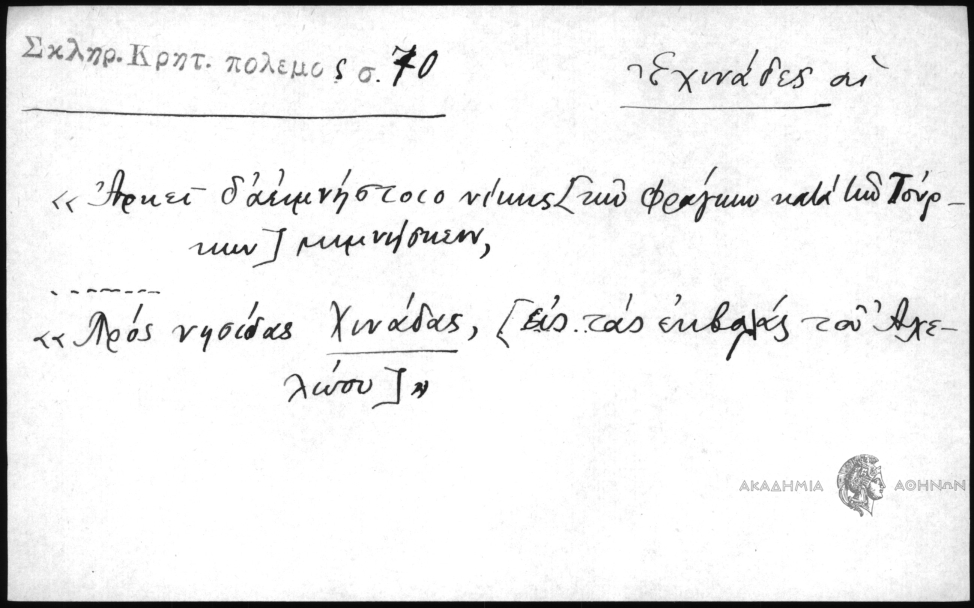 Σκληρ. Κρητ. πολεμος σ. 70
Ἐχινάδες αἱ
«Ἀρκεῖ δ' ἀειμνήστοιο νίκης [τῶν Φράγκων κατά τῶν Τούρ-
κων] μιμνήσκειν,
«Πρός νησίδας Χινάδας, [εἰς τάς ἐκβολάς τοῦ Ἀχε-
λώου]»
ΑΚΑΔΗΜΙΑ ΑΘΗΝΩΝ